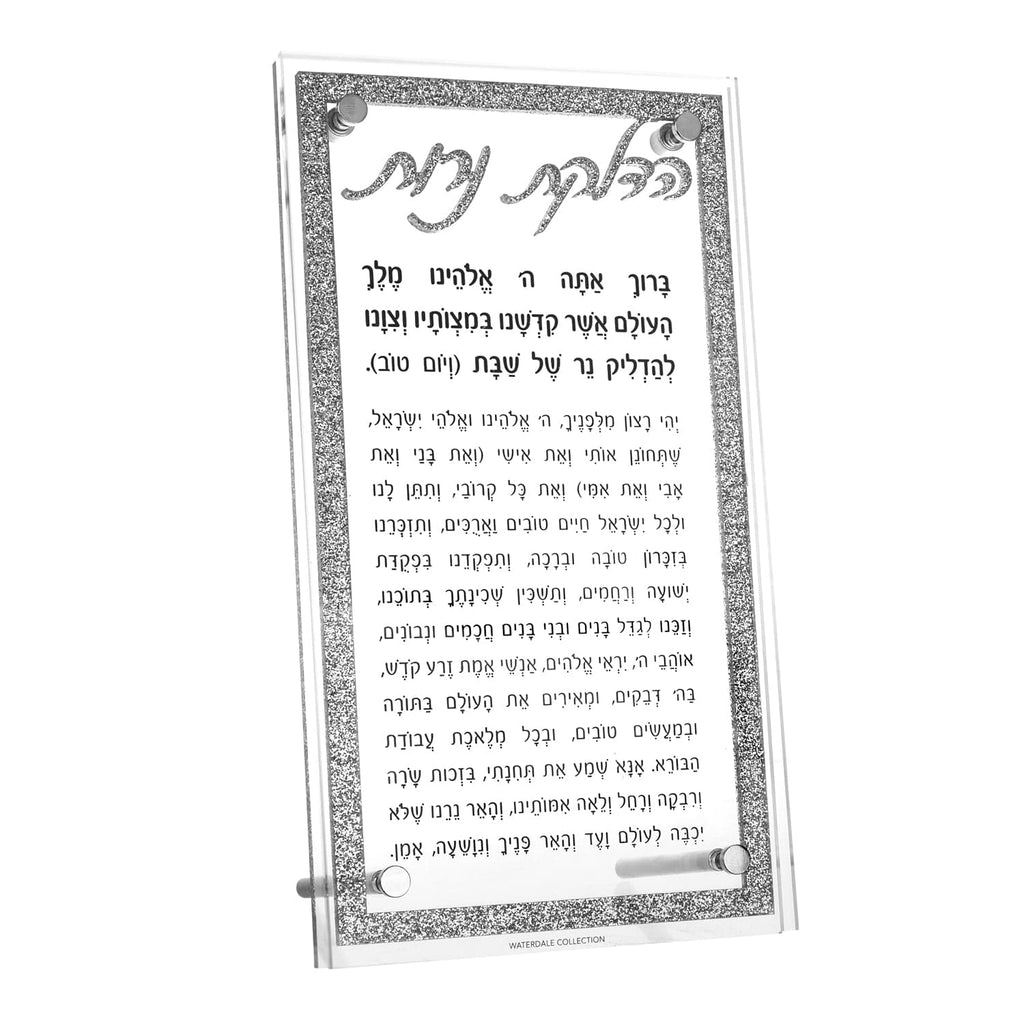 הדלקת נרות
בָּרוּךְ אַתָּה ה׳ אֱלֹהֵינוּ מֶלֶךְ
הָעוֹלָם אֲשֶׁר קִדְּשָׁנוּ בְּמִצְוֹתָיו וְצִוָּנוּ
לְהַדְלִיק נֵר שֶׁל שַׁבָּת (וְיוֹם טוֹב).
יְהִי רָצוֹן מִלְּפָנֶיךָ, ה׳ אֱלֹהֵינוּ וֵאלֹהֵי יִשְׂרָאֵל,
שֶׁתְּחוֹנֵן אוֹתִי וְאֵת אִישִׁי (וְאֵת בָּנַי וְאֵת
אָבִי וְאֵת אִמִּי) וְאֵת כָּל קְרוֹבַי, וְתִתֵּן לָנוּ
וּלְכָל יִשְׂרָאֵל חַיִּים טוֹבִים וַאֲרֻכִּים, וְתִזְכְּרֵנוּ
בְּזִכְּרוֹן טוֹבָה וּבְרָכָה, וְתִפְקְדֵנוּ בִּפְקֻדַּת
יְשׁוּעָה וְרַחֲמִים, וְתַשְׁכִּין שְׁכִינָתְךָ בְּתוֹכֵנוּ,
וְזַכֵּנוּ לְגַדֵּל בָּנִים וּבְנֵי בָּנִים חֲכָמִים וּנְבוֹנִים,
אוֹהֲבֵי ה׳, יִרְאֵי אֱלֹהִים, אַנְשֵׁי אֱמֶת זֶרַע קֹדֶשׁ,
בַּה׳ דְּבֵקִים, וּמְאִירִים אֶת הָעוֹלָם בַּתּוֹרָה
וּבְמַעֲשִׂים טוֹבִים, וּבְכָל מְלֶאכֶת עֲבוֹדַת
הַבּוֹרֵא. אָנָּא שְׁמַע אֵת תְּחִנָתִי, בִּזְכוּת שָׂרָה
וְרִבְקָה וְרָחֵל וְלֵאָה אִמּוֹתֵינוּ, וְהָאֵר נֵרֵנוּ שֶׁלֹּא
יִכְבֶּה לְעוֹלָם וָעֶד וְהָאֵר פָּנֶיךָ וְנִוָּשֵׁעָה, אָמֵן.
WATERDALE COLLECTION